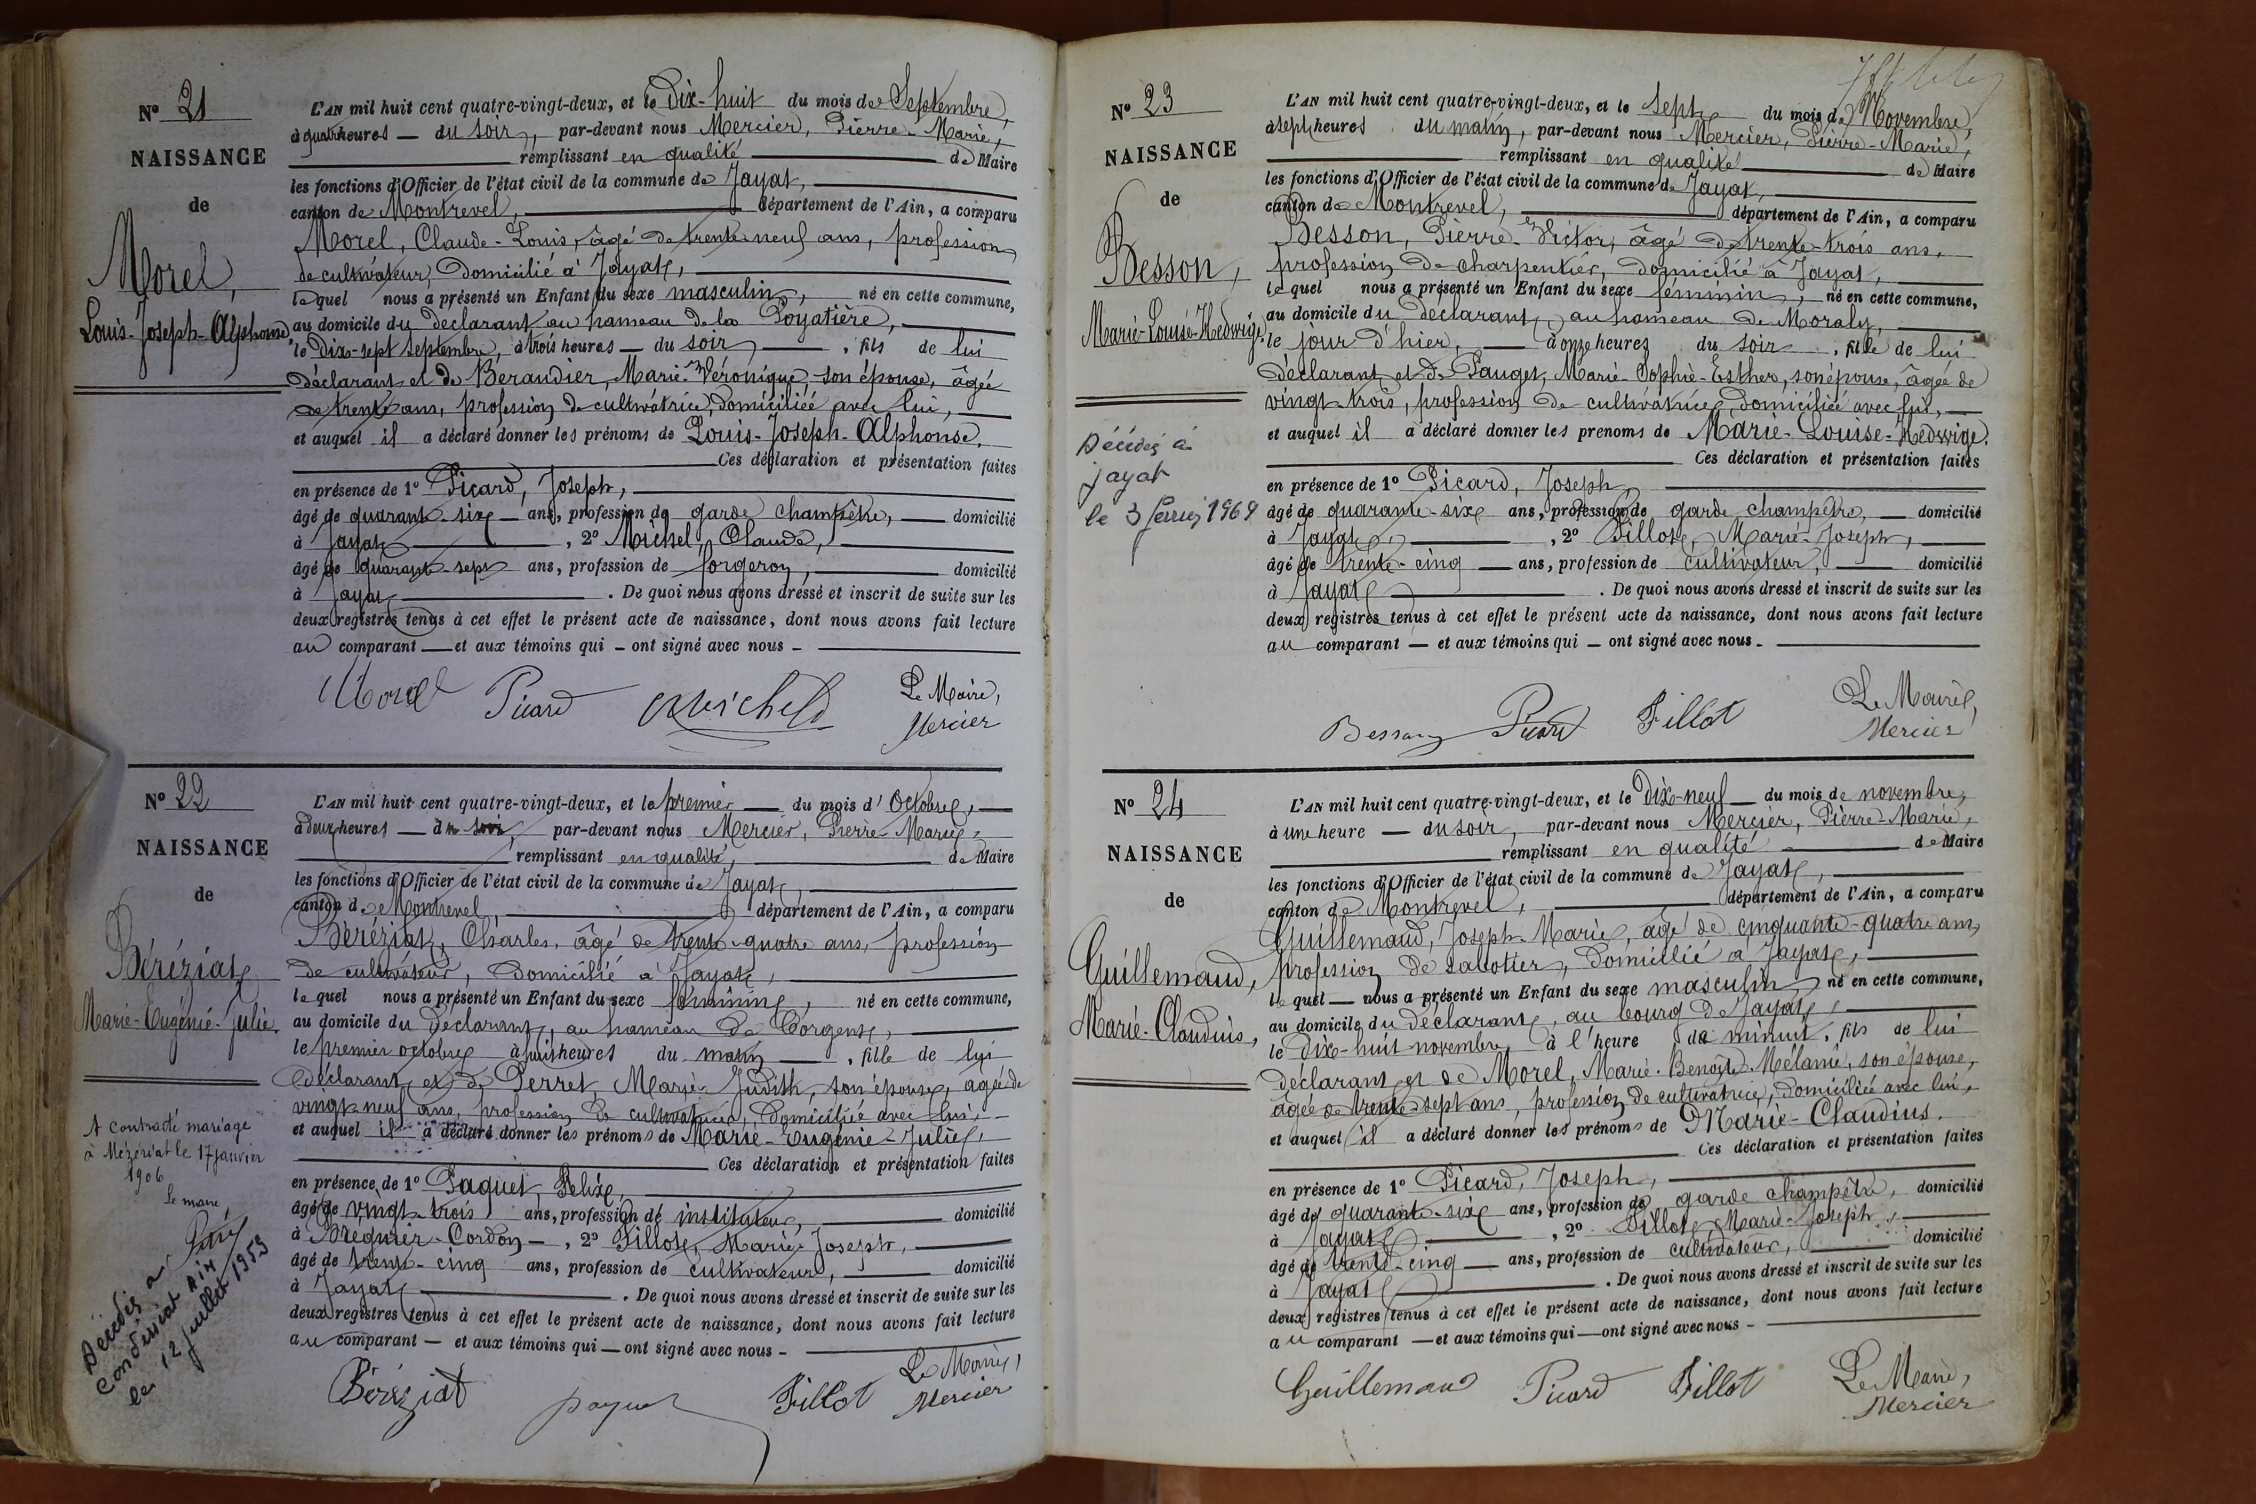 N° 21
NAISSANCE
de
Morel,
Louis-Joseph-Alphonse,
L'AN mil huit cent quatre-vingt-deux, et le Dix-huit du mois de Septembre,
à quatre heures — du soir, par-devant nous Mercier, Pierre-Marie,
remplissant en qualité de Maire
les fonctions d'Officier de l'état civil de la commune de Jayat,
canton de Montrevel, département de l'Ain, a comparu
Morel, Claude-Louis, âgé de trente-neuf ans, profession
de cultivateur, domicilié à Jayat,
lequel nous a présenté un Enfant du sexe masculin, né en cette commune,
au domicile du déclarant au hameau de la Poyatière,
le dix-sept septembre, à trois heures — du soir, fils de lui
déclarant et de Beraudier, Marie-Véronique, son épouse, âgée
de trente ans, profession de cultivatrice, domiciliée avec lui,
et auquel il a déclaré donner les prénoms de Louis-Joseph-Alphonse.
Ces déclaration et présentation faites
en présence de 1° Picard, Joseph,
âgé de quarante-six — ans, profession de garde champêtre, — domicilié
à Jayat, 2° Michel, Claude,
âgé de quarante-sept ans, profession de forgeron, domicilié
à Jayat. De quoi nous avons dressé et inscrit de suite sur les
deux registres tenus à cet effet le présent acte de naissance, dont nous avons fait lecture
au comparant — et aux témoins qui — ont signé avec nous —
Morel Picard Michel Le Maire,
Mercier
N° 22
NAISSANCE
de
Béréziat,
Marie-Eugénie-Julie.
A contracté mariage
à Mézériat le 17 janvier
1906
Le maire
Décédée à
Condeissiat Ain
le 12 juillet 1953
L'AN mil huit cent quatre-vingt-deux, et le premier — du mois d'Octobre, —
à deux heures — du soir, par-devant nous Mercier, Pierre-Marie,
remplissant en qualité, de Maire
les fonctions d'Officier de l'état civil de la commune de Jayat,
canton de Montrevel, département de l'Ain, a comparu
Béréziat, Charles, âgé de trente-quatre ans, profession
de cultivateur, domicilié à Jayat,
lequel nous a présenté un Enfant du sexe féminin, né en cette commune,
au domicile du déclarant, au hameau de Corgent,
le premier octobre à huit heures du matin —, fille de lui
déclarant et de Perret, Marie-Judith, son épouse, âgée de
vingt-neuf ans, profession de cultivatrice, domiciliée avec lui, —
et auquel il a déclaré donner les prénoms de Marie-Eugénie-Julie,
Ces déclaration et présentation faites
en présence de 1° Paquet, Félix,
âgé de vingt-trois ans, profession de instituteur, domicilié
à Bregnier-Cordon —, 2° Fillot, Marie-Joseph, —
âgé de trente-cinq ans, profession de cultivateur, domicilié
à Jayat. De quoi nous avons dressé et inscrit de suite sur les
deux registres tenus à cet effet le présent acte de naissance, dont nous avons fait lecture
au comparant — et aux témoins qui — ont signé avec nous —
Béréziat paquet Fillot Le Maire,
Mercier
N° 23
NAISSANCE
de
Besson,
Marie-Louise-Hedwige.
Décédée à
jayat
le 3 février 1969
L'AN mil huit cent quatre-vingt-deux, et le sept du mois de Novembre,
à sept heures du matin, par-devant nous Mercier, Pierre-Marie,
remplissant en qualité de Maire
les fonctions d'Officier de l'état civil de la commune de Jayat,
canton de Montrevel, département de l'Ain, a comparu
Besson, Pierre-Victor, âgé de trente-trois ans,
profession de charpentier, domicilié à Jayat,
lequel nous a présenté un Enfant du sexe féminin, né en cette commune,
au domicile du déclarant, au hameau de Moraly,
le jour d'hier, — à onze heures du soir, fille de lui
déclarant et de Pauget, Marie-Sophie-Esther, son épouse, âgée de
vingt-trois, profession de cultivatrice, domiciliée avec lui, —
et auquel il a déclaré donner les prénoms de Marie-Louise-Hedwige.
Ces déclaration et présentation faites
en présence de 1° Picard, Joseph,
âgé de quarante-six ans, profession de garde champêtre, — domicilié
à Jayat, 2° Fillot, Marie-Joseph,
âgé de trente-cinq — ans, profession de cultivateur, domicilié
à Jayat. De quoi nous avons dressé et inscrit de suite sur les
deux registres tenus à cet effet le présent acte de naissance, dont nous avons fait lecture
au comparant — et aux témoins qui — ont signé avec nous —
Besson Picard Fillot Le Maire,
Mercier
N° 24
NAISSANCE
de
Guillemaud,
Marie-Claudius,
L'AN mil huit cent quatre-vingt-deux, et le Dix-neuf — du mois de novembre,
à une heure — du soir, par-devant nous Mercier, Pierre-Marie,
remplissant en qualité de Maire
les fonctions d'Officier de l'état civil de la commune de Jayat,
canton de Montrevel, département de l'Ain, a comparu
Guillemaud, Joseph-Marie, âgé de cinquante-quatre ans,
profession de sabotier, domicilié à Jayat,
lequel — nous a présenté un Enfant du sexe masculin, né en cette commune,
au domicile du déclarant, au bourg de Jayat,
le dix-huit novembre à l'heure de minuit, fils de lui
déclarant et de Morel, Marie-Benoîte-Mélanie, son épouse,
âgée de trente-sept ans, profession de cultivatrice, domiciliée avec lui,
et auquel il a déclaré donner les prénoms de Marie-Claudius.
Ces déclaration et présentation faites
en présence de 1° Picard, Joseph,
âgé de quarante-six ans, profession de garde champêtre, domicilié
à Jayat, 2° Fillot, Marie-Joseph,
âgé de trente-cinq — ans, profession de cultivateur, domicilié
à Jayat. De quoi nous avons dressé et inscrit de suite sur les
deux registres tenus à cet effet le présent acte de naissance, dont nous avons fait lecture
au comparant — et aux témoins qui — ont signé avec nous —
Guillemaud Picard Fillot Le Maire,
Mercier